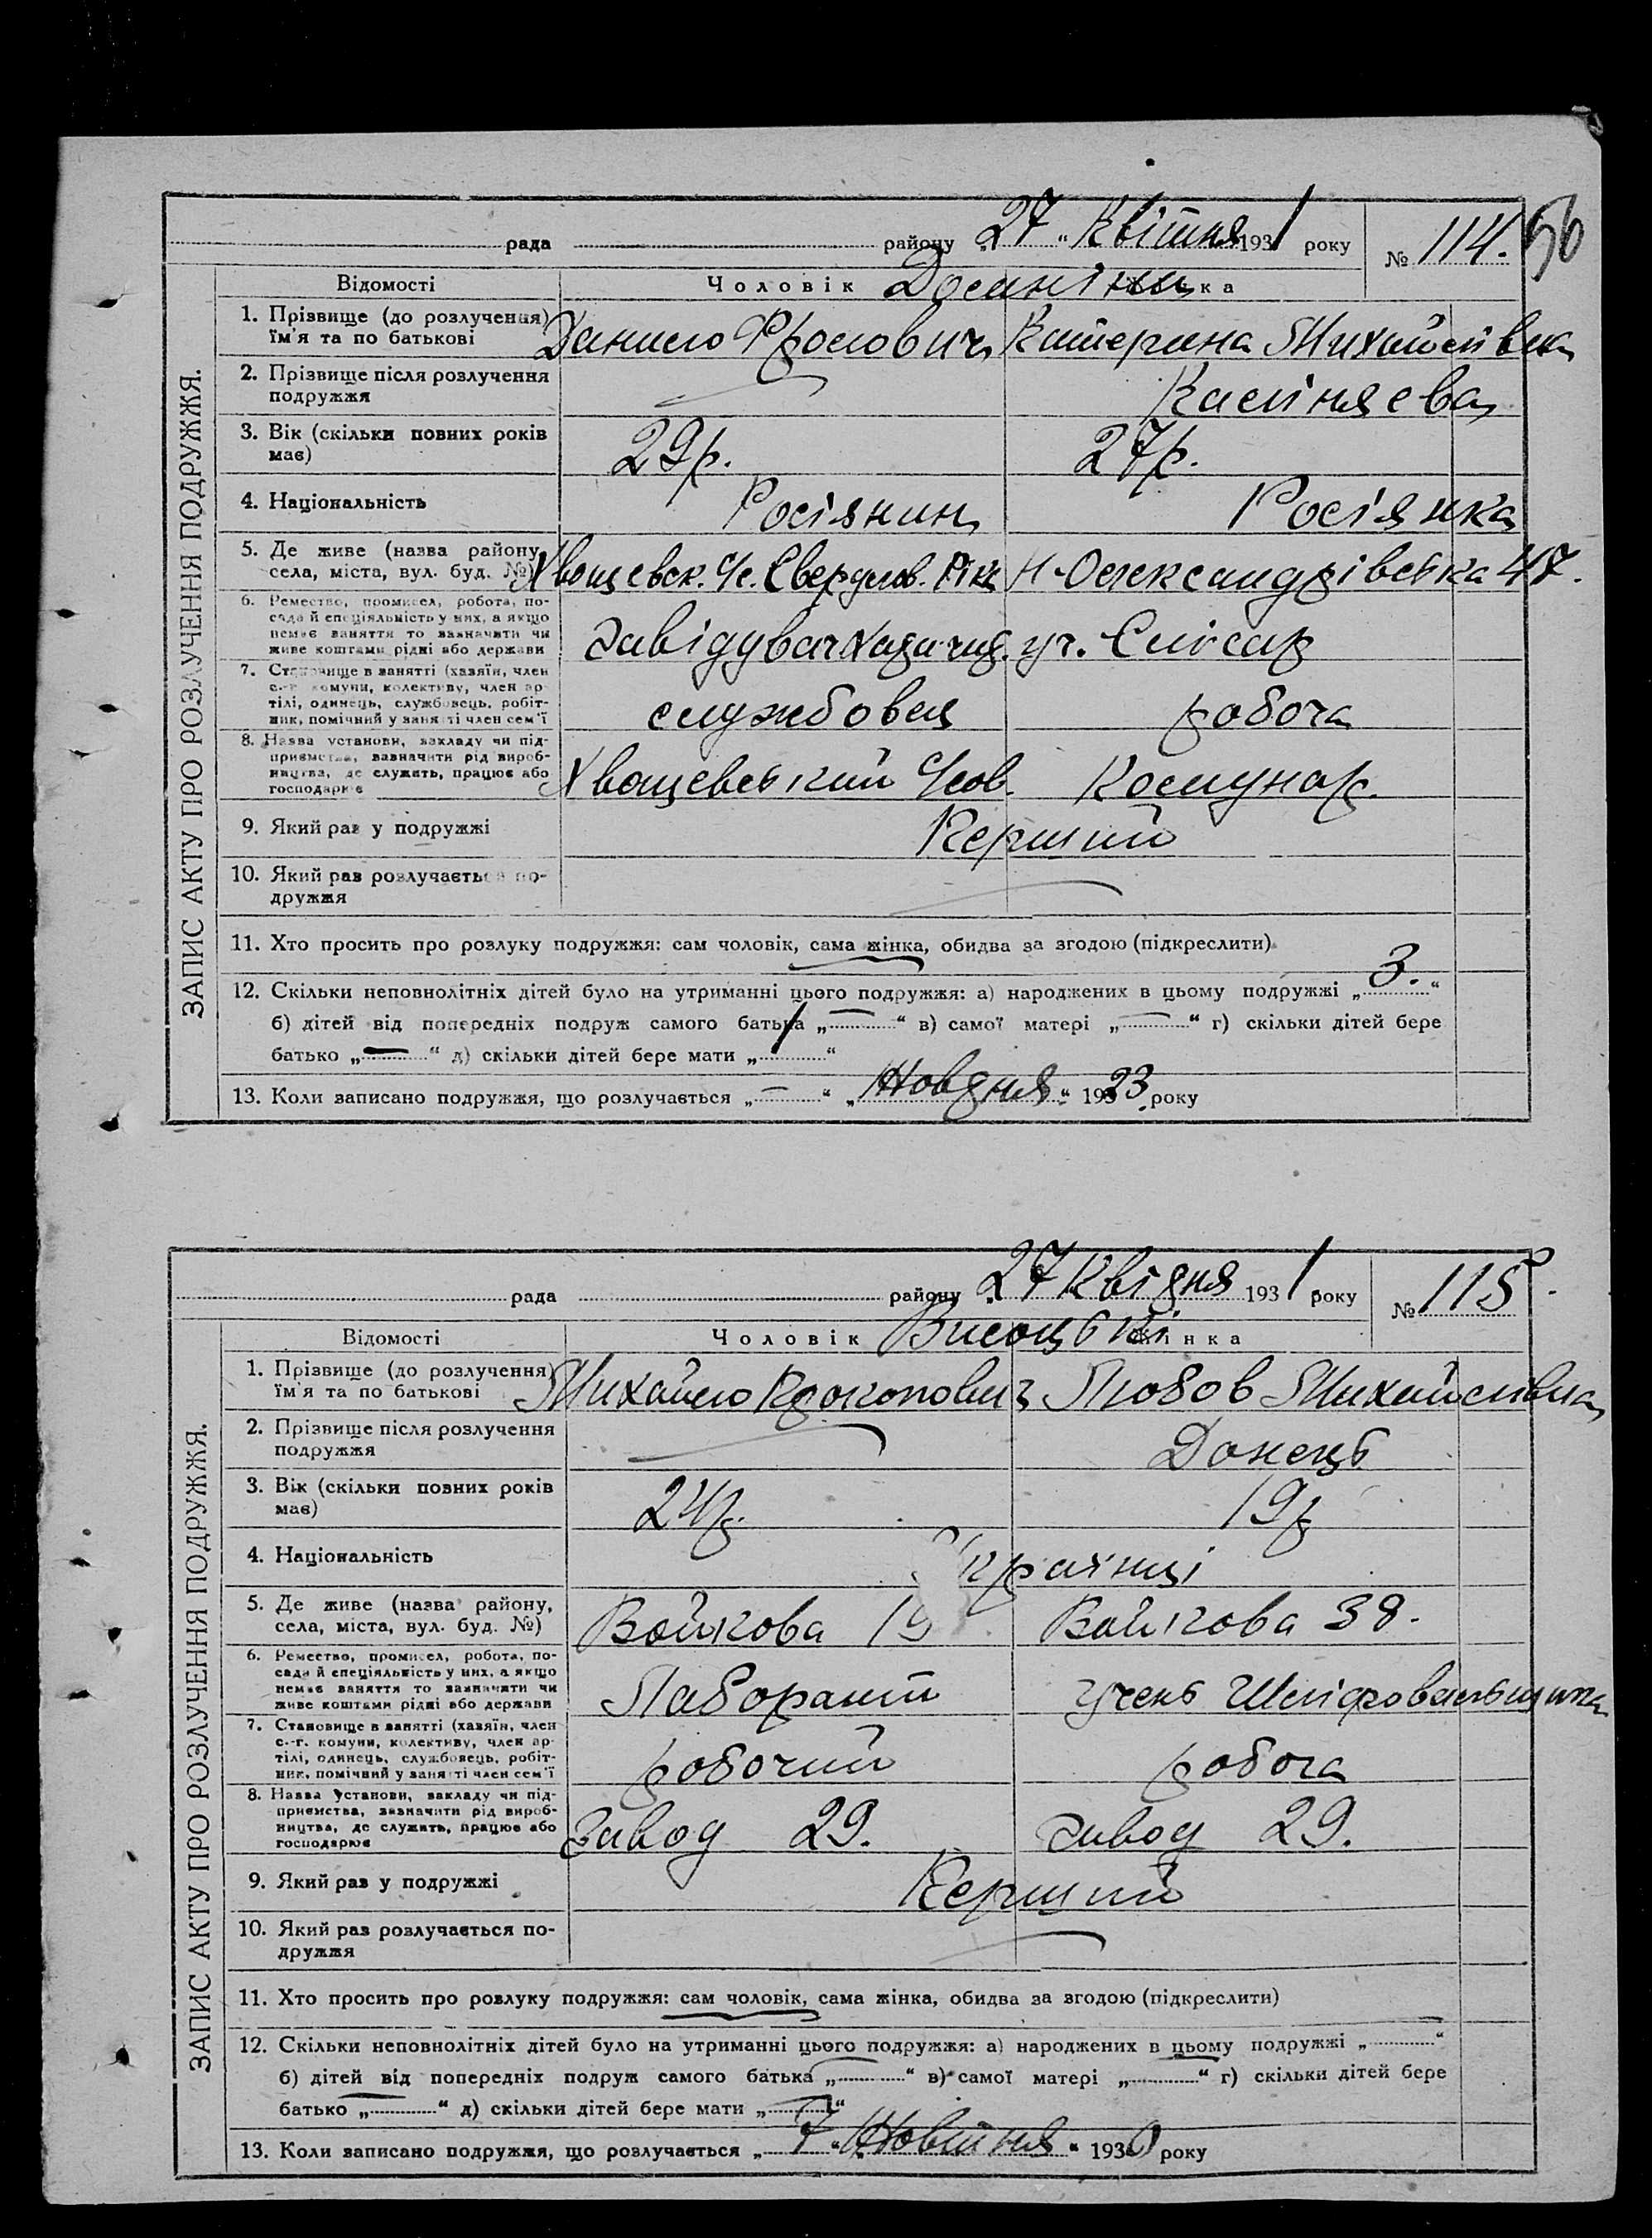 56
рада района „27“ Квітня 1931 року № 114.
Відомості Чоловік Жінка
1. Прізвище (до розлучення) їм'я та по батькові
Данило Фролович Катерина Михайлівна
2. Прізвище після розлучення подружжя
3. Вік (скільки повних років має)
29 р. 27 р.
4. Національність
Росіянин Росіянка
5. Де живе (назва району, села, міста, вул. буд. №)
Н-Олександрівська 47.
6. Ремество, промисел, робота, посада й спеціяльність у них, а якщо
немає заняття то зазначити чи
живе коштами рідні або держави
уч. Слюсар
7. Становище в занятті (хазяїн, член
с.-г. комуни, колективу, член ар-
тілі, одинець, службовець, робіт-
ник, помічний у занятті член сем'ї
службовец робоча
8. Назва установи, закладу чи під-
приємства, зазначити рід вироб-
ництва, де служить, працює або
господарює
Комунар.
9. Який раз у подружжі
Перший
10. Який раз розлучається по-
дружжя
11. Хто просить про розлуку подружжя: сам чоловік, сама жінка, обидва за згодою (підкреслити)
12. Скільки неповнолітніх дітей було на утриманні цього подружжя: а) народжених в цьому подружжі „3.“
б) дітей від попередніх подруж самого батька „—“ в) самої матері „—“ г) скільки дітей бере
батько „—“ д) скільки дітей бере мати „ “
13. Коли записано подружжя, що розлучається „—“ „Жовдня“ 1923 року
ЗАПИС АКТУ ПРО РОЗЛУЧЕННЯ ПОДРУЖЖЯ.
рада району „27 Квідня 1931 року № 115.
Відомості Чоловік Жінка
Висоцькі
1. Прізвище (до розлучення) їм'я та по батькові
Михайло Прокопович Любов Михайлівна
2. Прізвище після розлучення
подружжя
Донець
3. Вік (скільки повних років
має)
24 р. 19 р
4. Національність
Українці
5. Де живе (назва району,
села, міста, вул. буд. №)
Войкова Войкова 38.
6. Ремество, промисел, робота, по-
сада й спеціяльність у них, а якщо
немає заняття то зазначити чи
живе коштами рідні або держави
Лаборант учень Шліфовальщика
7. Становище в занятті (хазяїн, член
с.-г. комуни, колективу, член ар-
тілі, одинець, службовець, робіт-
ник, помічний у занятті член сем'ї
робочий робоча
8. Назва установи, закладу чи під-
приємства, зазначити рід вироб-
ництва, де служить, працює або
господарює
завод 29. завод 29.
9. Який раз у подружжі
Перший
10. Який раз розлучається по-
дружжя
11. Хто просить про розлуку подружжя: сам чоловік, сама жінка, обидва за згодою (підкреслити)
12. Скільки неповнолітніх дітей було на утриманні цього подружжя: а) народжених в цьому подружжі „ “
б) дітей від попередніх подруж самого батька „ “ в) самої матері „ “ г) скільки дітей бере
батько „ “ д) скільки дітей бере мати „ “
13. Коли записано подружжя, що розлучається „7“ „Жовтня“ 1930 року
ЗАПИС АКТУ ПРО РОЗЛУЧЕННЯ ПОДРУЖЖЯ.